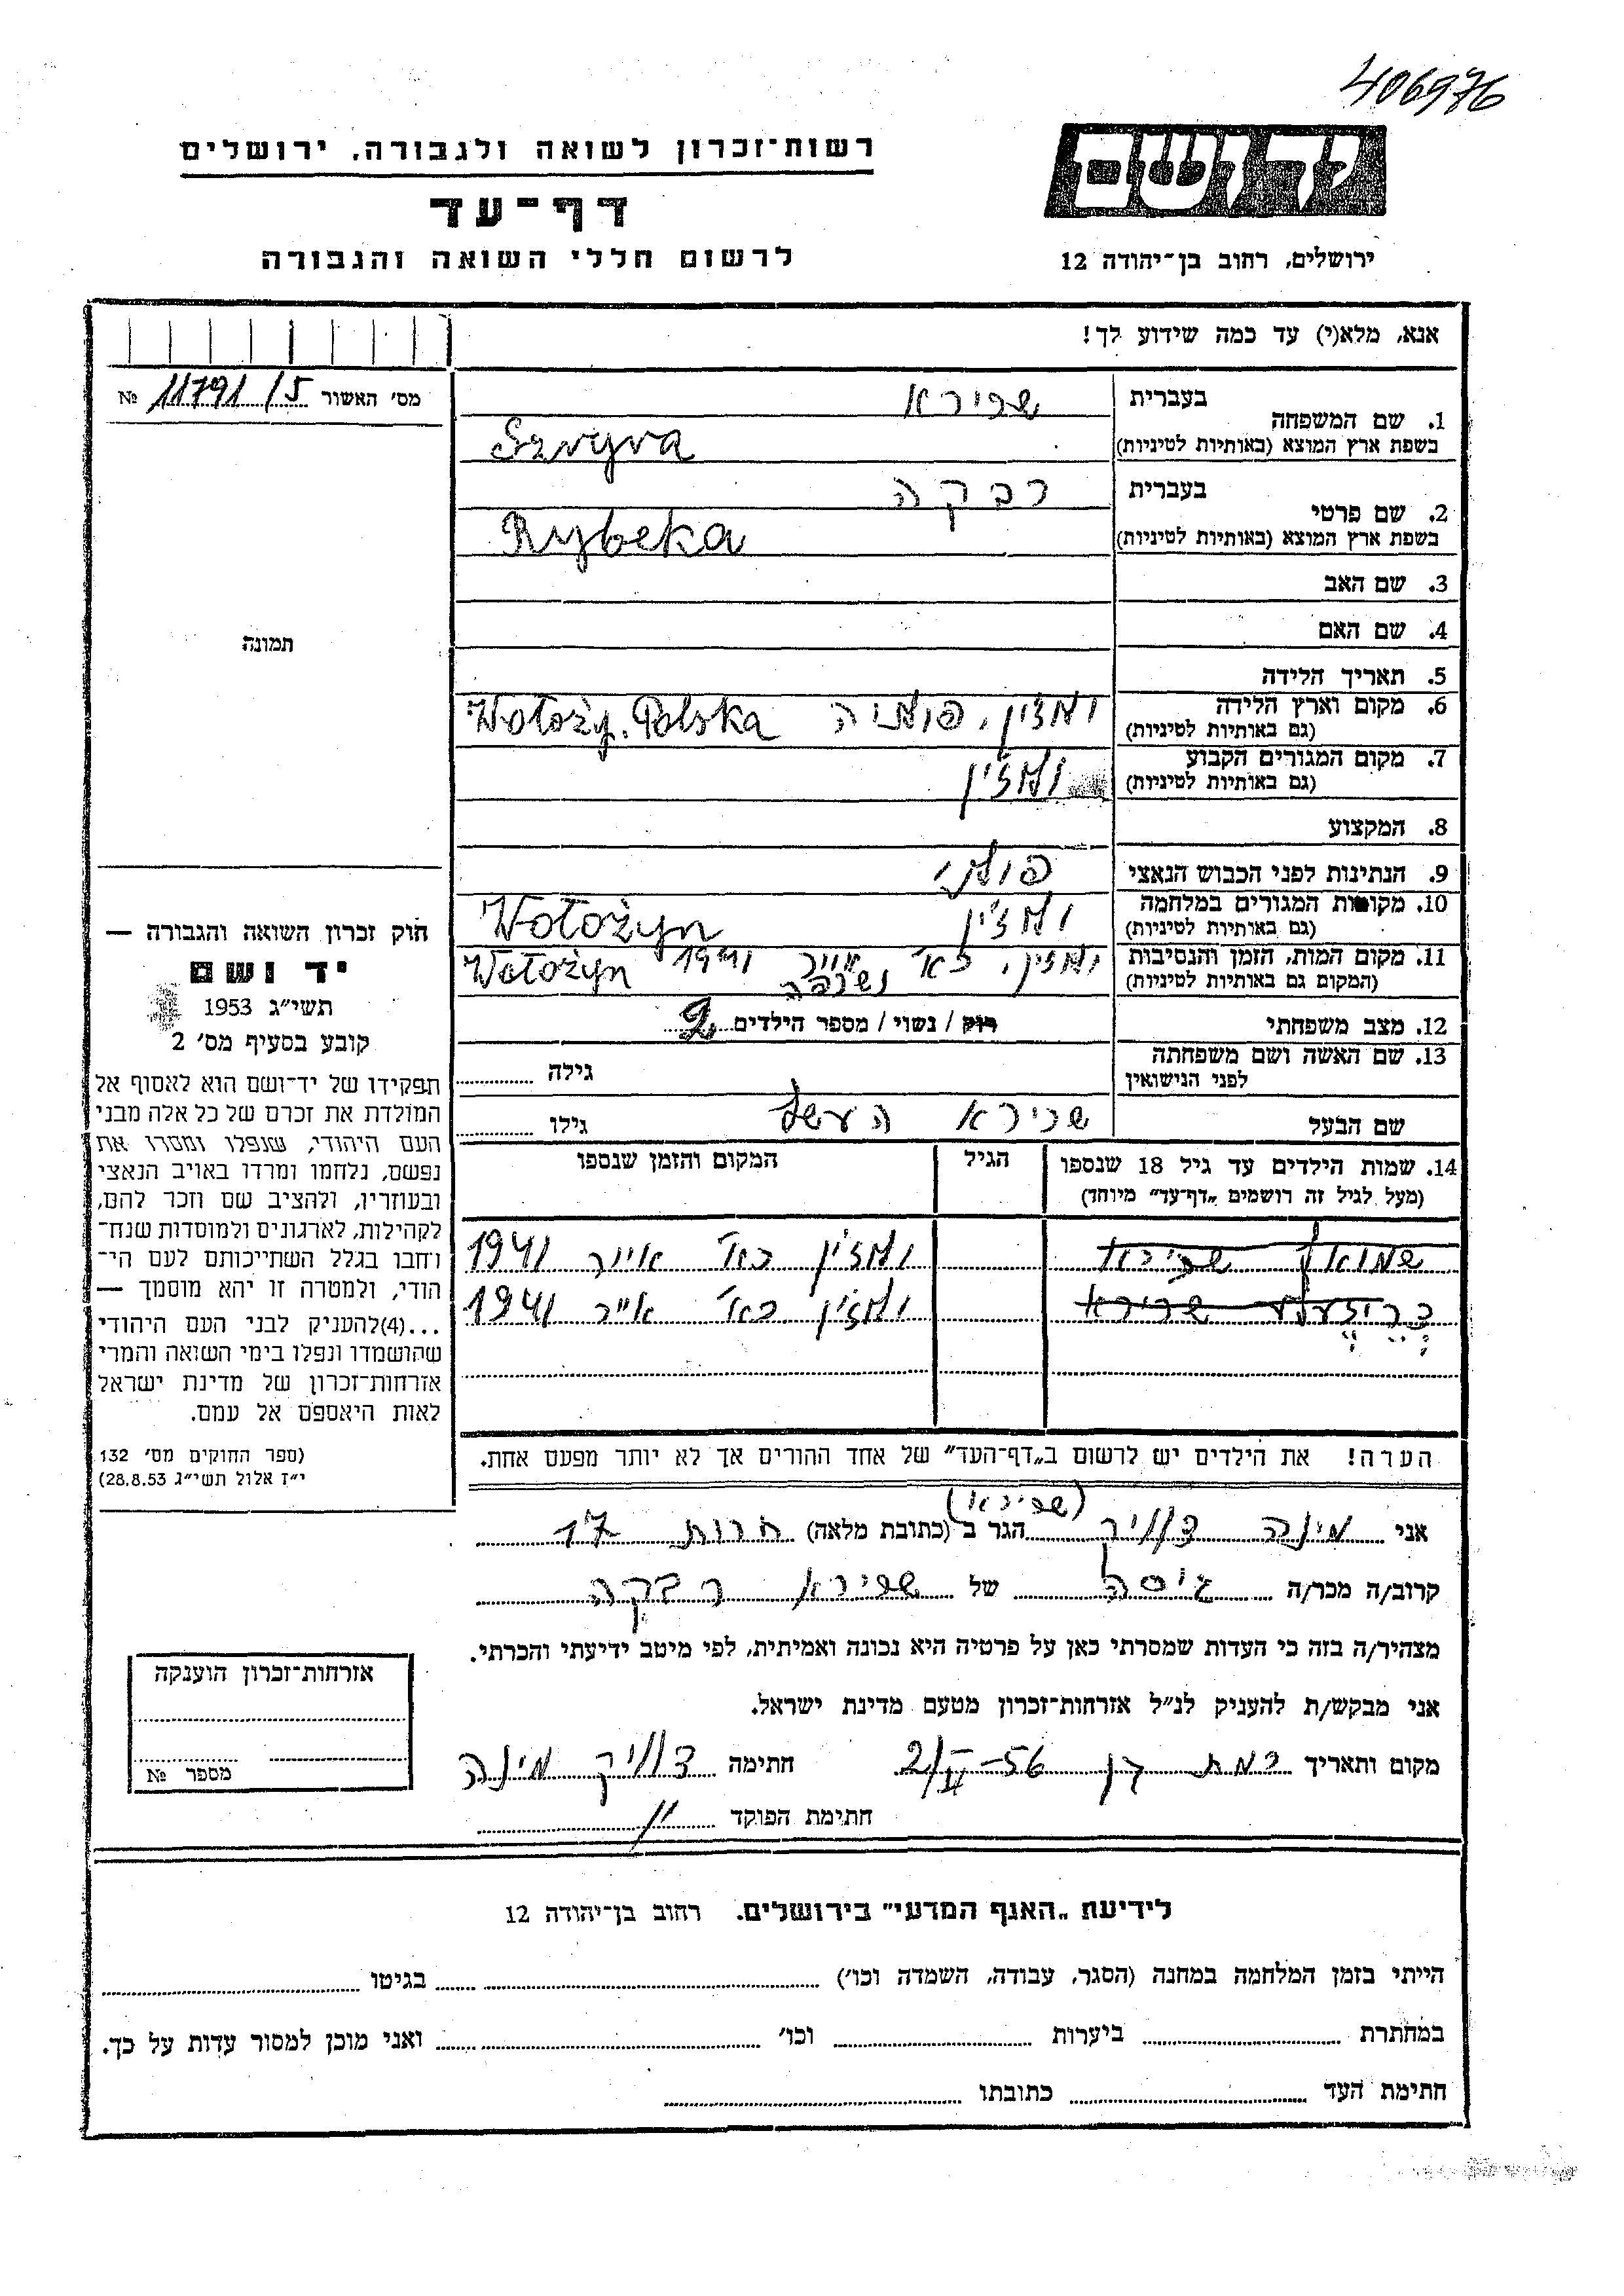 406976
רשות־זכרון לשואה ולגבורה, ירושלים
דף־עד
לרשום חללי השואה והגבורה
יד ושם
ירושלים, רחוב בן־יהודה 12
אנא, מלא(י) עד כמה שידוע לך!
מס' האשור 11791/5 №
1. שם המשפחה
בעברית שפירא
בשפת ארץ המוצא (באותיות לטיניות)
2. שם פרטי
בעברית רבקה
בשפת ארץ המוצא (באותיות לטיניות) Rybeka
3. שם האב
4. שם האם
5. תאריך הלידה
6. מקום וארץ הלידה
(גם באותיות לטיניות)
ולוז'ין, פולניה Wołoży. Polska
7. מקום המגורים הקבוע
(גם באותיות לטיניות)
ולוז'ין
8. המקצוע
9. הנתינות לפני הכבוש הנאצי פולני
10. מקומות המגורים במלחמה
(גם באותיות לטיניות)
ולוז'ין Wołożyn
11. מקום המות, הזמן והנסיבות
(המקום גם באותיות לטיניות)
ולוז'ין, כא' אייר 1941 Wołożyn
נשרפה
12. מצב משפחתי רוק / נשוי / מספר הילדים 2
13. שם האשה ושם משפחתה
לפני הנישואין
גילה
שם הבעל שפירא העשל גילו
14. שמות הילדים עד גיל 18 שנספו
(מעל לגיל זה רושמים „דף־עד" מיוחד)
הגיל
המקום והזמן שנספו
שמואל שפירא ולוז'ין כא' אייר 1941
שפירא ולוז'ין כא' אייר 1941
הערה! את הילדים יש לרשום ב„דף־העד" של אחד ההורים אך לא יותר מפעם אחת.
תמונה
חוק זכרון השואה והגבורה —
יד ושם
תשי"ג 1953
קובע בסעיף מס' 2
תפקידו של יד־ושם הוא לאסוף אל
המולדת את זכרם של כל אלה מבני
העם היהודי, שנפלו ומסרו את
נפשם, נלחמו ומרדו באויב הנאצי
ובעוזריו, ולהציב שם וזכר להם,
לקהילות, לארגונים ולמוסדות שנח־
רחבו בגלל השתייכותם לעם הי־
הודי, ולמטרה זו יהא מוסמך —
...(4)להעניק לבני העם היהודי
שהושמדו ונפלו בימי השואה והמרי
אזרחות־זכרון של מדינת ישראל
לאות היאספם אל עמם.
(ספר החוקים מס' 132
י"ז אלול תשי"ג 28.8.53)
(שפירא)
אני מינה הגר ב (כתובת מלאה) חרות 17
קרוב/ה מכר/ה גיסה של שפירא רבקה
מצהיר/ה בזה כי העדות שמסרתי כאן על פרטיה היא נכונה ואמיתית, לפי מיטב ידיעתי והכרתי.
אני מבקש/ת להעניק לנ"ל אזרחות־זכרון מטעם מדינת ישראל.
מקום ותאריך רמת גן חתימה מינה
חתימת הפוקד
אזרחות־זכרון הוענקה
מספר №
לידיעת „האגף המדעי" בירושלים. רחוב בן־יהודה 12
הייתי בזמן המלחמה במחנה (הסגר, עבודה, השמדה וכו') בגיטו
במחתרת ביערות וכו' ואני מוכן למסור עדות על כך.
חתימת העד כתובתו